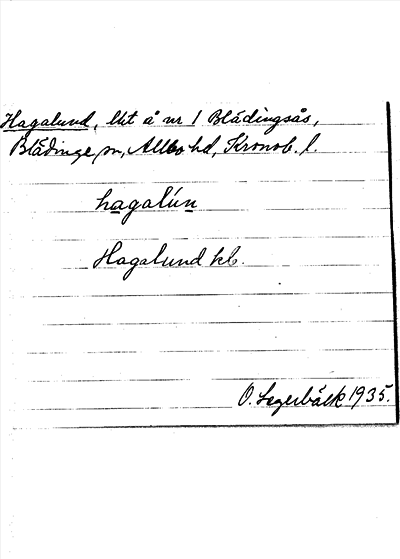 Hagalund, lht å nr 1 Blädingsås,
Blädinge sn, Allbo hd, Kronob. l.
hagalún
Hagalund kb.
O. Lagerbäck 1935.